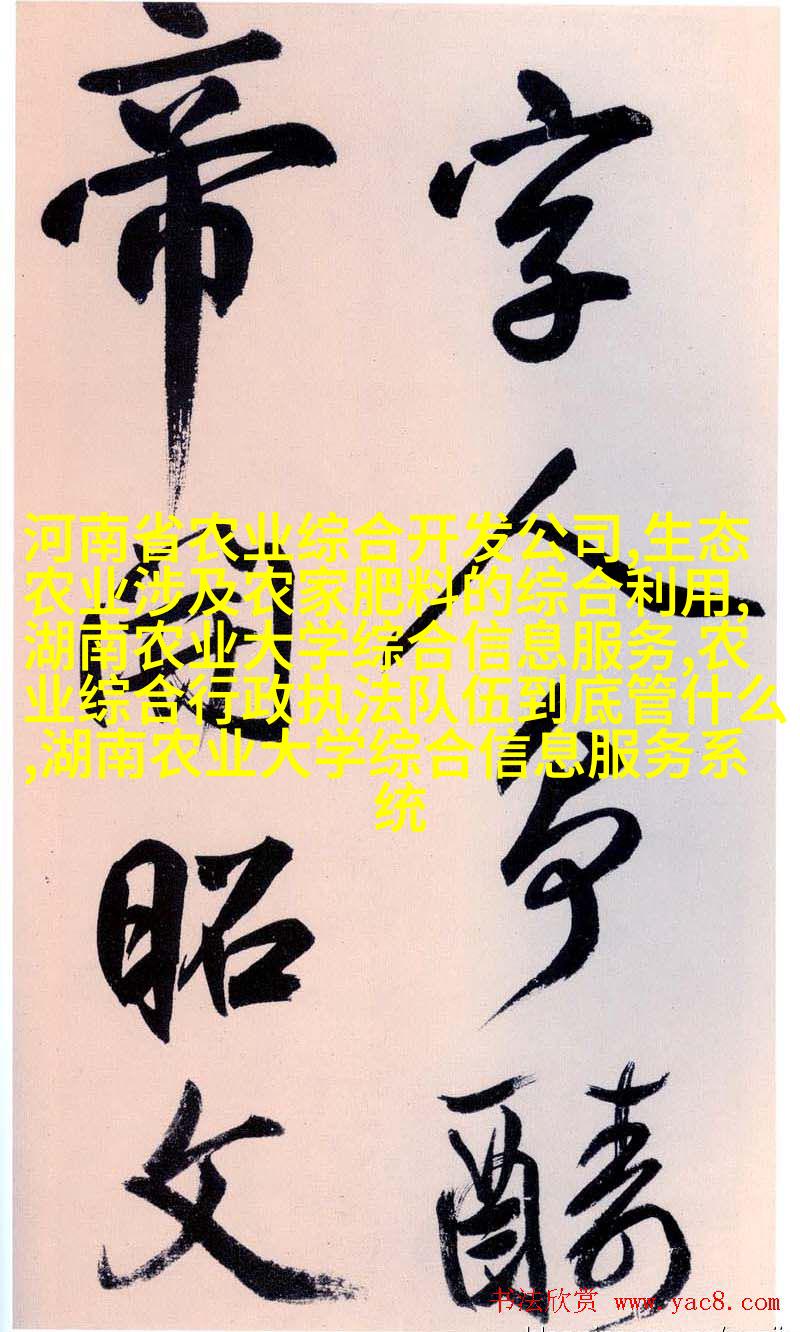 字人
帝
昭文
河南省农业综合开发公司,生态
农业涉及农家肥料的综合利用,
湖南农业大学综合信息服务,农
业综合行政执法队伍到底管什么
,湖南农业大学综合信息服务系
统
书法欣赏 www.yac8.com